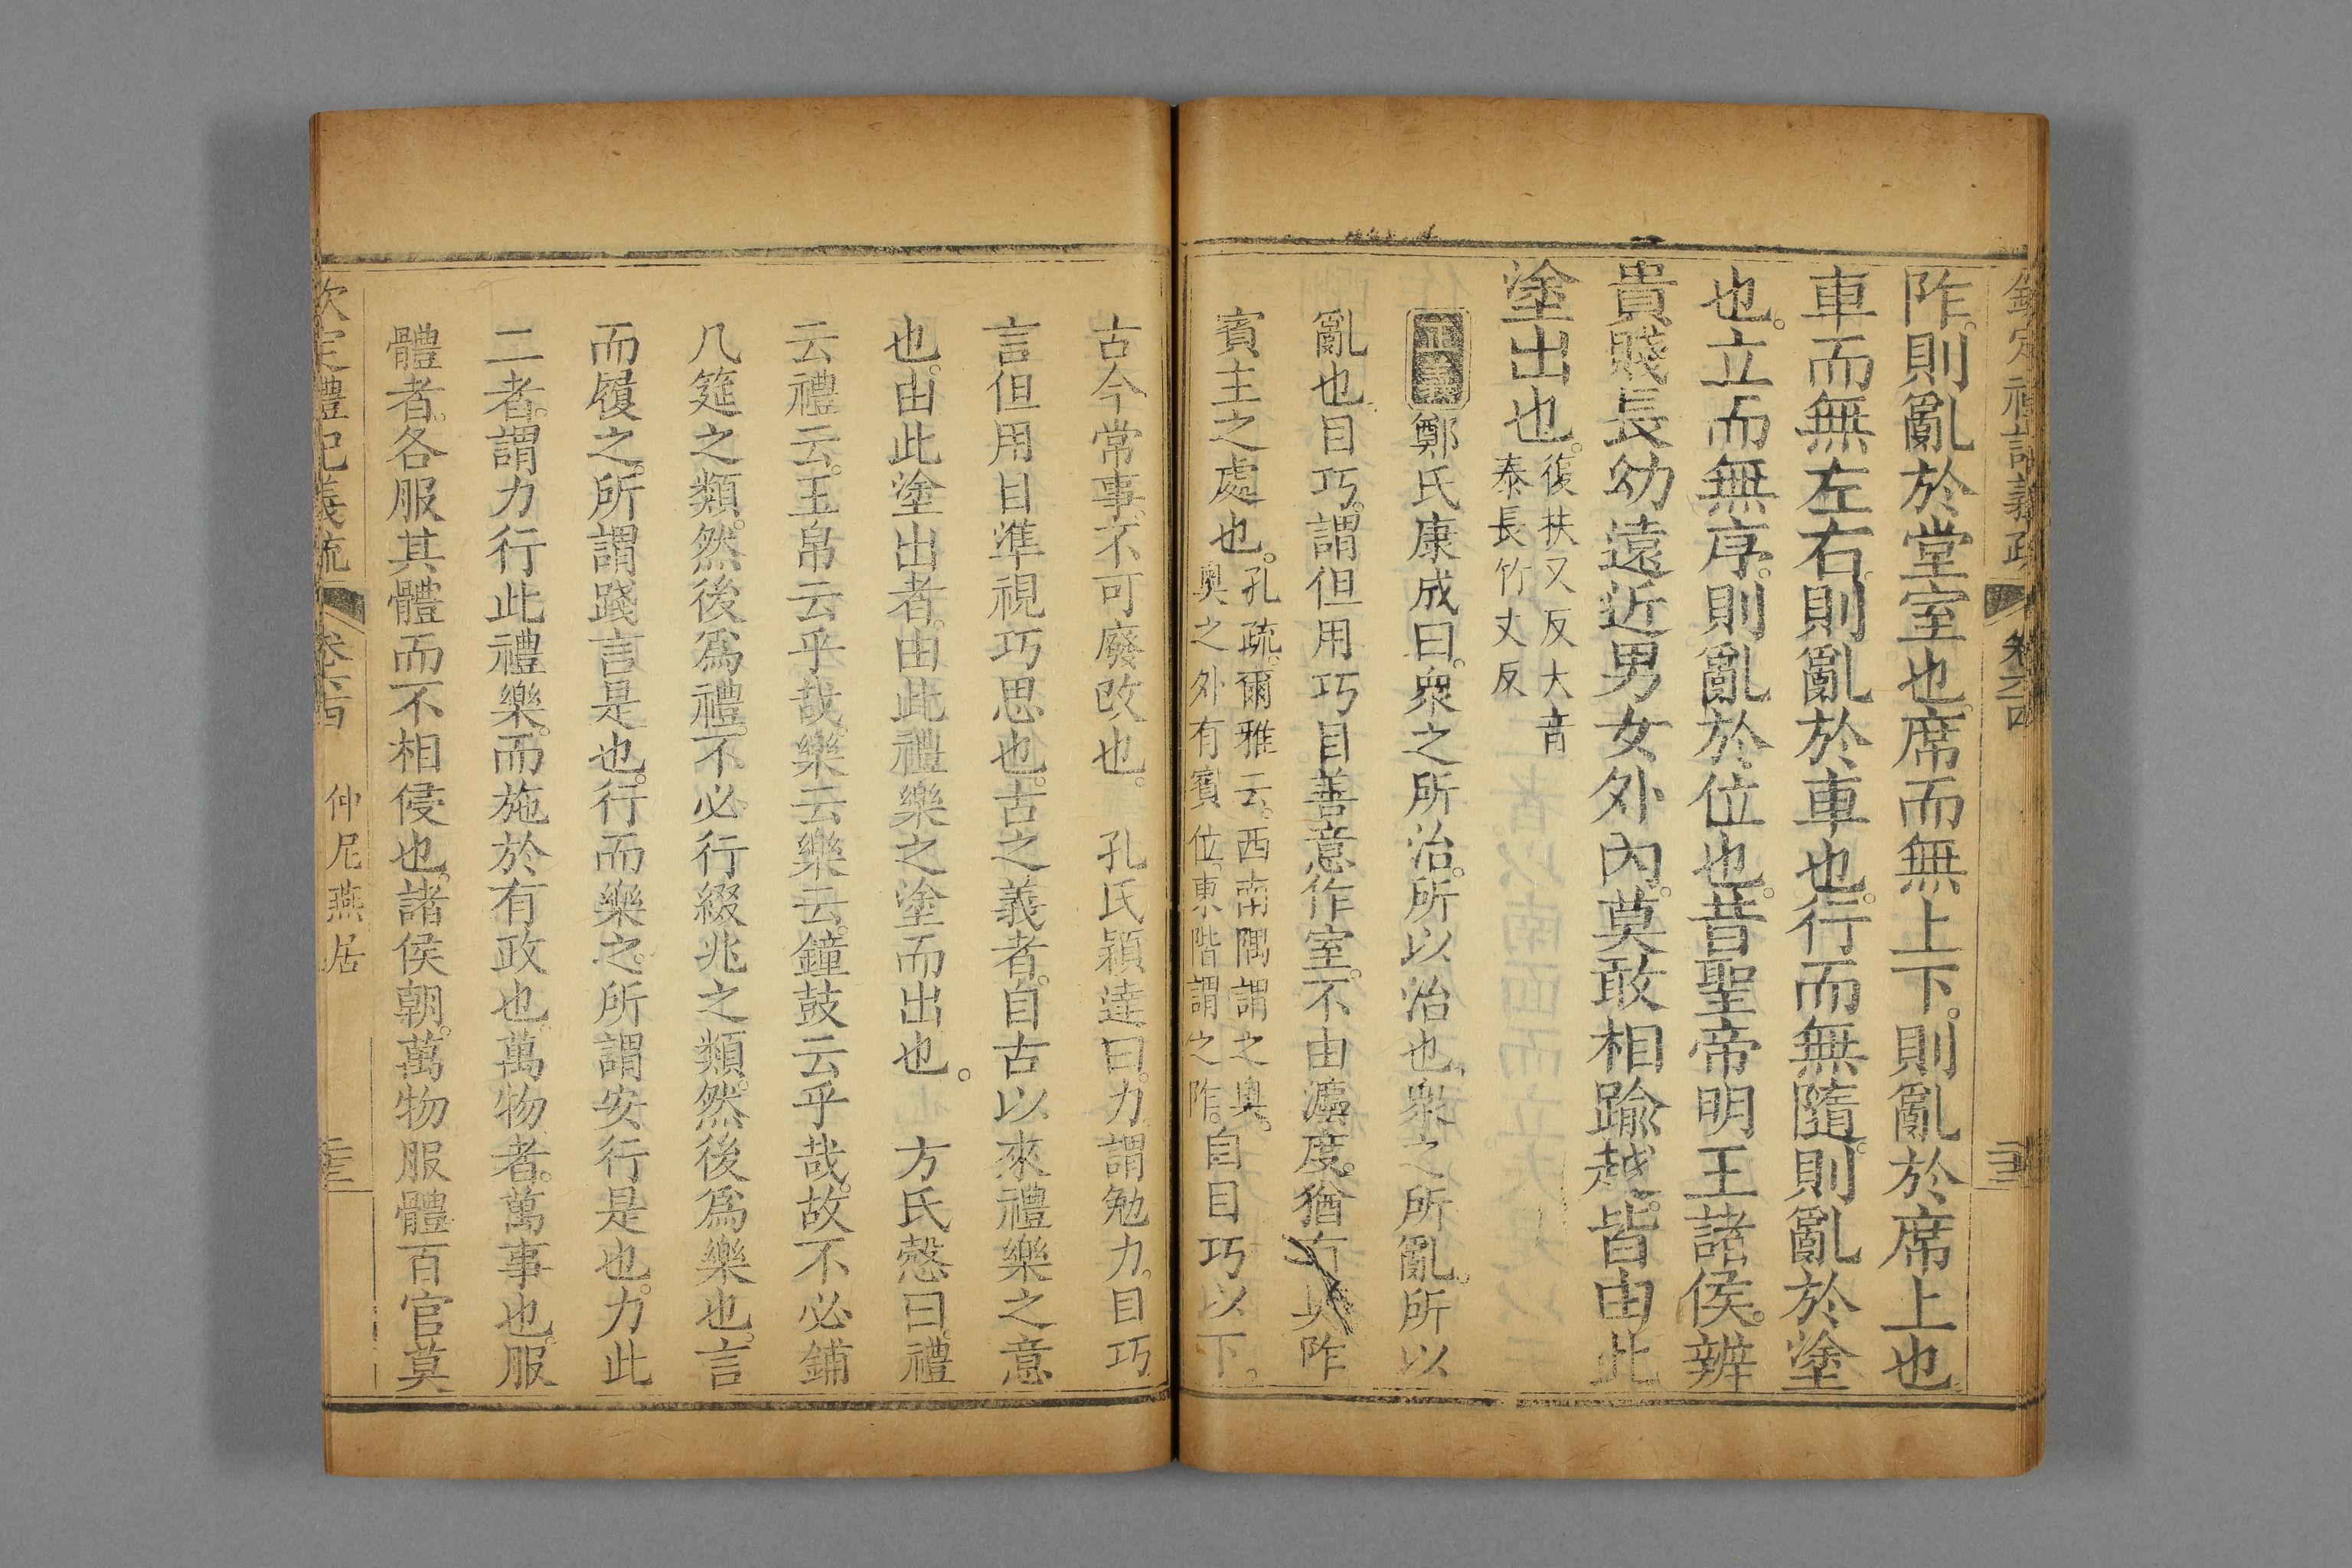 欽定禮記義疏 卷六十四 三十三
阼。則亂於堂室也。席而無上下。則亂於席上也。
車而無左右。則亂於車也。行而無隨。則亂於塗
也。立而無序。則亂於位也。昔聖帝明王諸侯。辨
貴賤長幼遠近男女外內。莫敢相踰越。皆由此
塗出也。復扶又反大音泰長竹丈反
正義鄭氏康成曰。眾之所治。所以治也。眾之所亂。所以
亂也目巧。謂但用巧目善意作室。不由灋度。猶有奥阼
賓主之處也。孔疏。爾雅云。西南隅謂之奧。奧之外有賓位。東階謂之阼。自目巧以下。
古今常事。不可廢改也。 孔氏穎達曰。力謂勉力。目巧
言但用目準視巧思也。古之義者。自古以來禮樂之意
也。由此塗出者。由此禮樂之塗而出也。 方氏慤曰。禮
云禮云。玉帛云乎哉。樂云樂云。鐘鼓云乎哉。故不必鋪
几筵之類。然後爲禮。不必行綴兆之類。然後爲樂也。言
而履之。所謂踐言是也。行而樂之。所謂安行是也。力此
二者。謂力行此禮樂。而施於有政也。萬物者。萬事也。服
體者。各服其體而不相侵也。諸侯朝。萬物服體百官莫
欽定禮記義疏 卷六十四 仲尼燕居 三十三